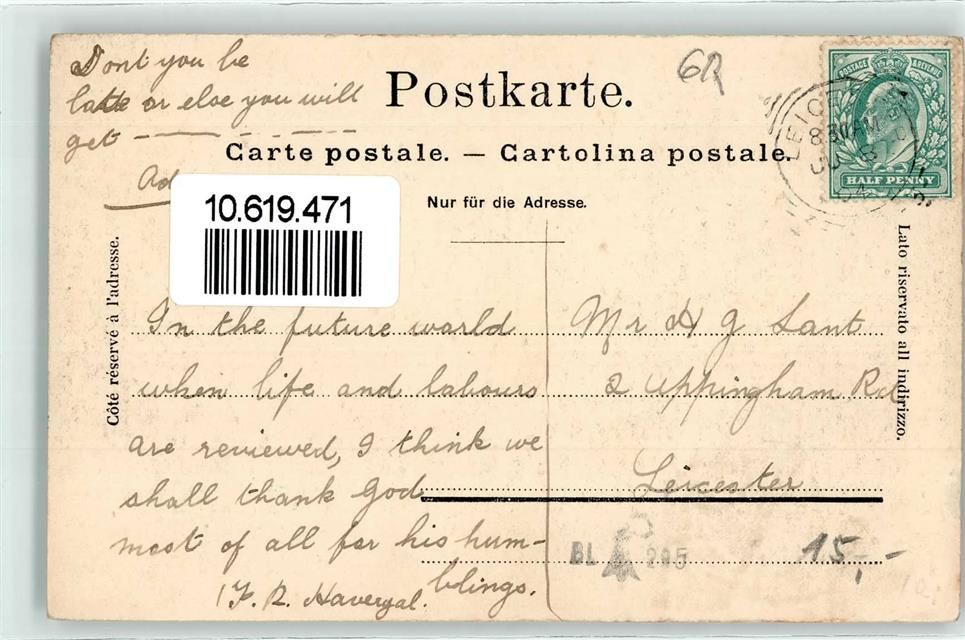 Dont you be
late or else you will
get
Postkarte.
6R
POSTAGE & REVENUE
HALF PENNY
LEICE
8.30 AM
JU 8
04
Carte postale. — Cartolina postale.
Ad
Nur für die Adresse.
10.619.471
Côté réservé à l'adresse.
Lato riservato all indirizzo.
In the future world
when life and labours
are reviewed, I think we
shall thank God
most of all for his hum-
blings.
F. R. Havergal.
Mr H G Lant
2 Uppingham Rd
Leicester
BL 295
15,-